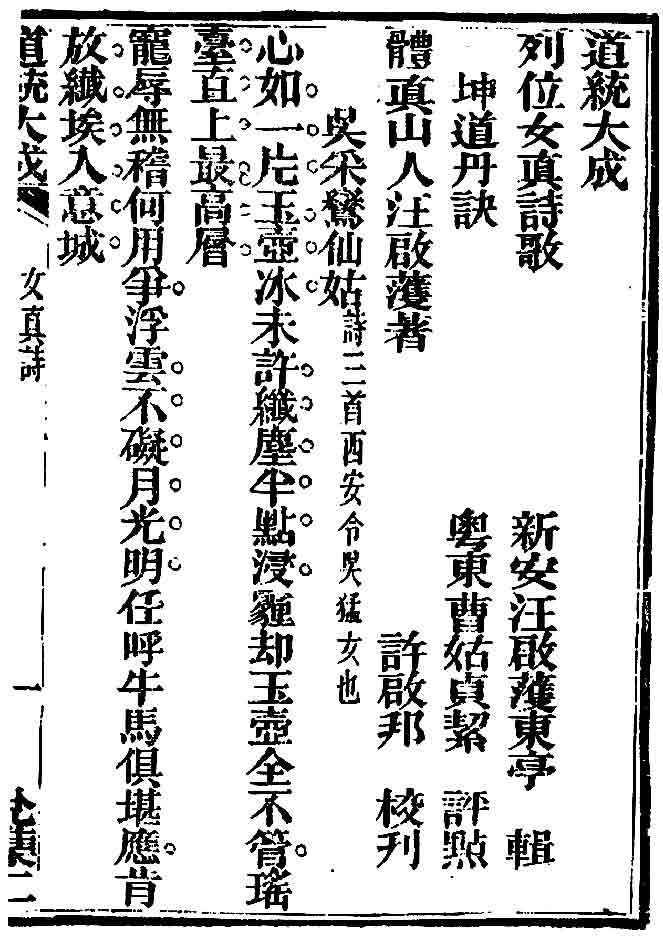 道統大成
列位女真詩歌　新安汪啟濩東亭　輯
坤道丹訣　粵東曹姑貞絜　評點
體真山人汪啟濩著　許啟邦　校刊
吳采鸞仙姑詩三首西安令吳猛女也
心如一片玉壺冰未許纖塵半點浸羅却玉壺全不管瑤
臺直上最高層
寵辱無稽何用爭浮雲不礙月光明任呼牛馬俱堪應肯
放纖埃入意城
道統大成　女真詩　一